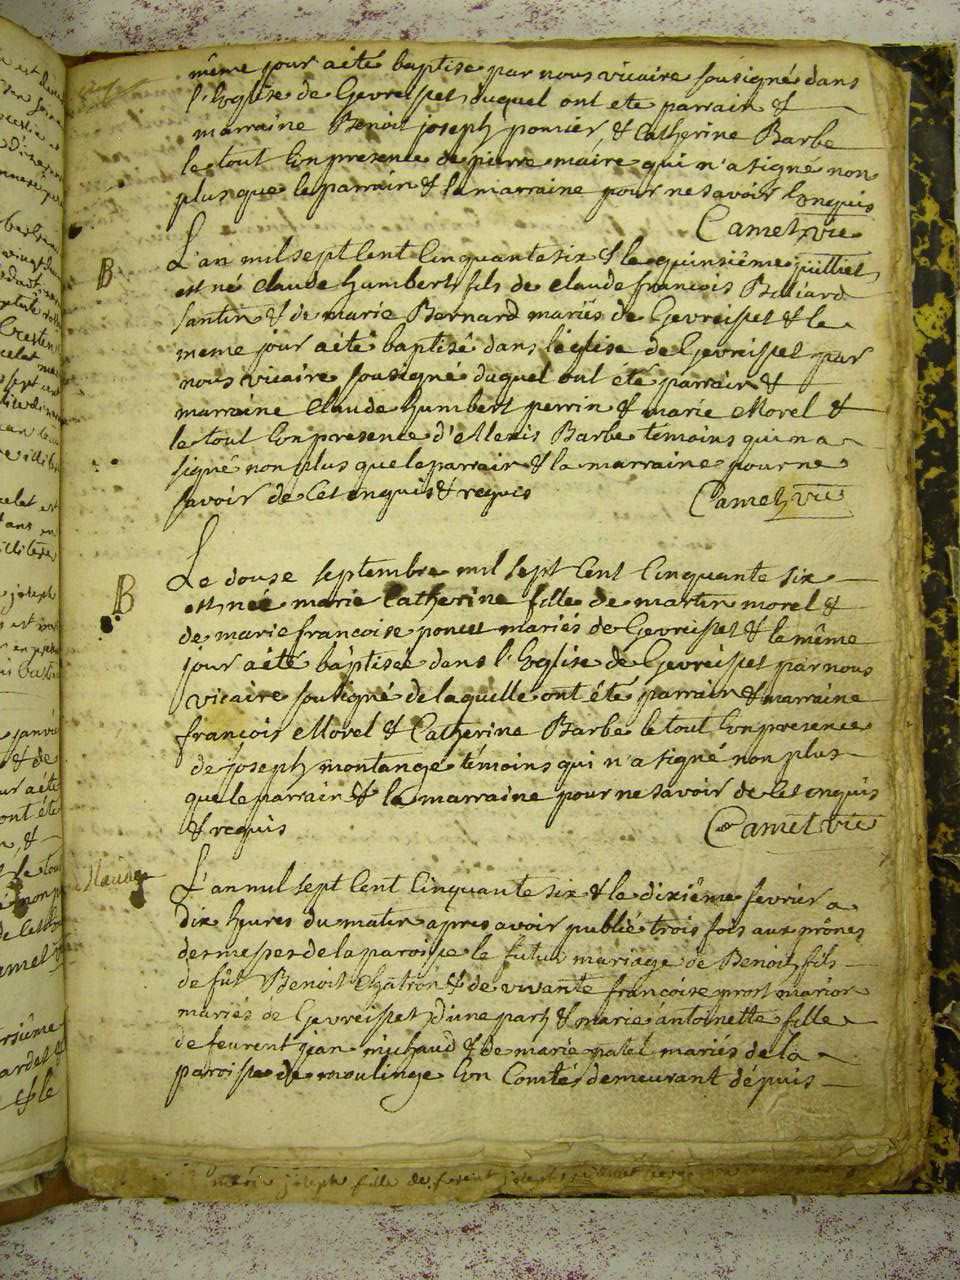 même jour aeté baptisé par nous vicaire sousigné dans
l'Eglise de Gevreisset duquel ont ete parrain &
marraine Benoit joseph poncier & Catherine Barbe
le tout En presence de pierre maire qui n'a signé non
plus que le parrain & la marraine pour ne savoir Enquis
Camet vic
B
L'an mil sept Cent Cinquante six & le quinsième juilliet
est né Claude humbert fils de claude françois Billiard
santin & de marie Bernard mariés de Gevreisset & le
meme jour aeté baptisé dans l'église de Gevreisset par
nous vicaire sousigné duquel ont été parrain &
marraine Claude humbert perrin & marie Morel &
le tout En presence d'Alexis Barbe témoins qui n a
signé non plus que le parrain & la marraine pour ne
savoir de Cet enquis & requis
Camet vic
B
Le douse septembre mil sept Cent Cinquante six
est née marie Catherine fille de martin morel &
de marie francoise poncet mariés de Gevreisset & le même
jour aeté baptisée dans l'Eglise de Gevreisset par nous
vicaire sousigné de laquelle ont été parrain & marraine
francois Morel & Catherine Barbe le tout En presence
de joseph montange témoins qui n'a signé non plus
que le parrain & la marraine pour ne savoir de Cet enquis
& requis
Camet vic
L'an mil sept Cent Cinquante six & le dixiême fevrier a
dix heures du matin apres avoir publié trois fois aux prônes
des messes de la paroisse le futur mariage de Benoit fils
de fût Benoit Chatron & de vivante francoise prost marior
mariés de Gevreisset d'une part & marie antoinette fille
de feu rent jean michaud & de marie patel mariés de la
paroisse de moulinge En Comté demeurant dépuis
marie joseph fille de